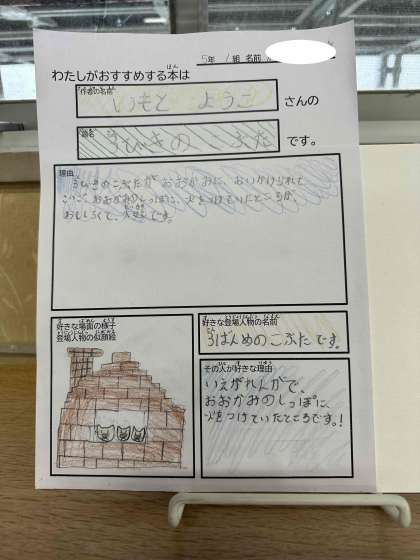 5年 1組 名前
わたしがおすすめする本は
作者の名前
いもと ようこ さんの
題名
3びきの こぶた です。
理由
3びきのこぶたが おおかみに、おいかけられて
さいごに、おおかみのしっぽに、火をつけていたところが、
おもしろくて、です。
好きな場面の様子
登場人物の似顔絵
好きな登場人物の名前
3ばんめのこぶたです。
その人が好きな理由
いえがれんがで、
おおかみのしっぽに、
火をつけていたところです。!